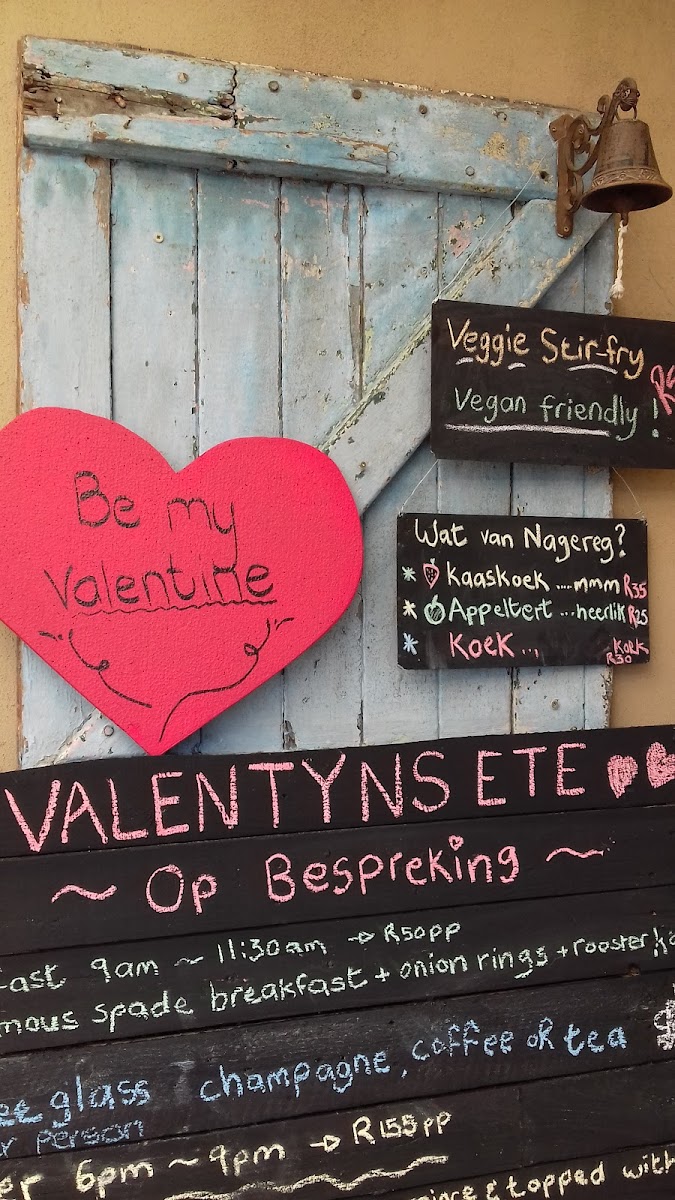 Veggie Stir-fry
Vegan friendly!
Be my
Valentine
Wat van Nagereg?
* Kaaskoek ....mmm R35
* Appeltert ...heerlik R25
* KOEK ... KOEK
R30
VALENTYNS ETE
~ Op Bespreking ~
fast 9am ~ 11:30am → R50pp
mous spade breakfast + onion rings + rooster
ee glass champagne, coffee or tea
r person
er 6pm ~ 9pm → R155pp
mince & topped with